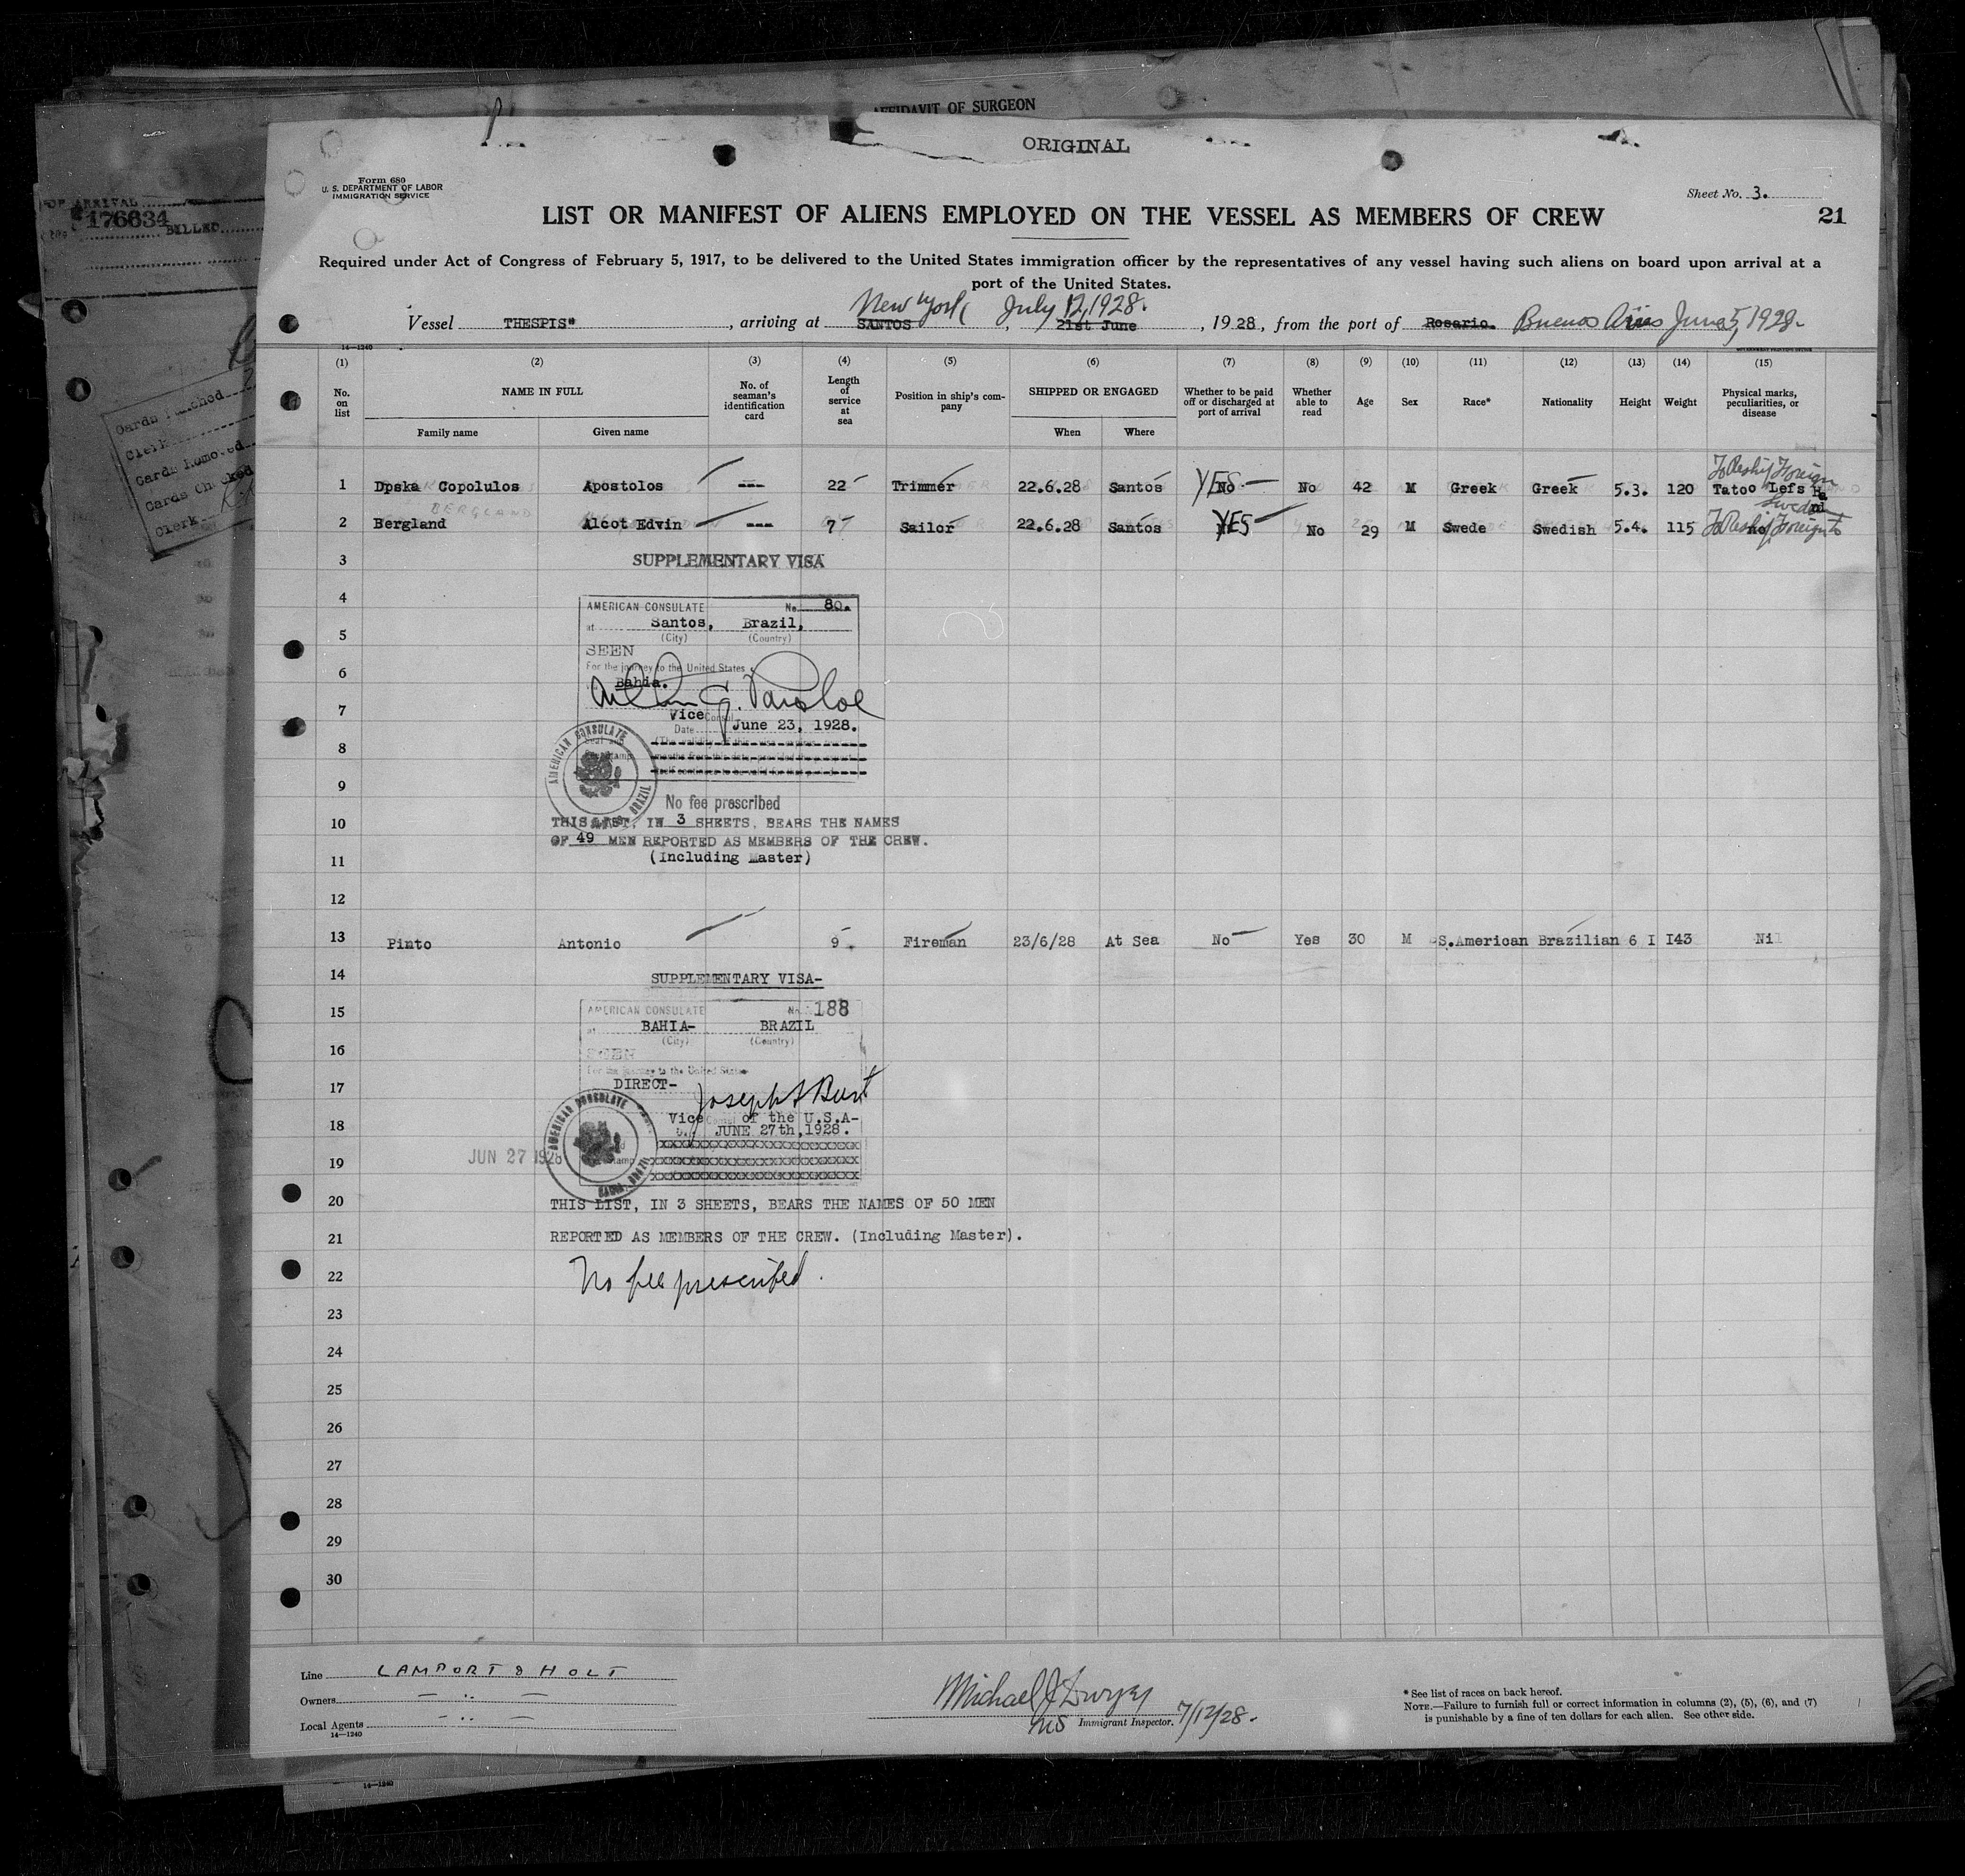 AFFIDAVIT OF SURGEON
ORIGINAL
Form 680
U. S. DEPARTMENT OF LABOR
IMMIGRATION SERVICE
Sheet No. 3.
OF ARRIVAL
176634 BILLED
LIST OR MANIFEST OF ALIENS EMPLOYED ON THE VESSEL AS MEMBERS OF CREW
21
Required under Act of Congress of February 5, 1917, to be delivered to the United States immigration officer by the representatives of any vessel having such aliens on board upon arrival at a
port of the United States.
New York July 12, 1928.
Vessel THESPIS" , arriving at SANTOS , 21st June , 1928, from the port of Rosario. Buenos Aires June 5, 1928.
14—1240
(1) (2) (3) (4) (5) (6) (7) (8) (9) (10) (11) (12) (13) (14) (15)
No. on list
NAME IN FULL
Family name
Given name
No. of seaman's identification card
Length of service at sea
Position in ship's company
SHIPPED OR ENGAGED
When
Where
Whether to be paid off or discharged at port of arrival
Whether able to read
Age
Sex
Race*
Nationality
Height
Weight
Physical marks, peculiarities, or disease
Cards Punched
Clerk
Cards Removed
Cards Checked
Clerk
To Reship Foreign
1 Dpska Copolulos Apostolos --- 22 Trimmer 22.6.28 Santos YES No No 42 M Greek Greek 5.3. 120 Tatoo Lefs Ha
nd
BERGLAND
2 Bergland Alcot Edvin --- 7 Sailor 22.6.28 Santos YES No 29 M Swede Swedish 5.4. 115 no To Reship Foreign to Sweden
3 SUPPLEMENTARY VISA
4 AMERICAN CONSULATE No. 80.
at Santos, Brazil,
5 (City) (Country)
SEEN
6 For the journey to the United States
Bahia.
7 Vice Consul
Date June 23, 1928.
8
AMERICAN CONSULATE BRAZIL
9
No fee prescribed
10 THIS LIST, IN 3 SHEETS, BEARS THE NAMES
OF 49 MEN REPORTED AS MEMBERS OF THE CREW.
11 (Including Master)
12
13 Pinto Antonio 9 Fireman 23/6/28 At Sea No Yes 30 M S.American Brazilian 6 I I43 Nil
14 SUPPLEMENTARY VISA-
15 AMERICAN CONSULATE No. 188
at BAHIA- BRAZIL
(City) (Country)
16 SEEN
For the journey to the United States
17 DIRECT-
Joseph A Burt
18 Vice Consul of the U.S.A-
JUNE 27th, 1928.
AMERICAN CONSULATE BAHIA BRAZIL
xxxxxxxxxxxxxxxxxxxxxxxxxx
19 JUN 27 1928
xxxxxxxxxxxxxxxxxxxxxxxxxx
xxxxxxxxxxxxxxxxxxxxxxxxxx
20 THIS LIST, IN 3 SHEETS, BEARS THE NAMES OF 50 MEN
21 REPORTED AS MEMBERS OF THE CREW. (Including Master).
22 No fee prescribed.
23
24
25
26
27
28
29
30
Line LAMPORT & HOLT
Owners — ,, —
Local Agents - ,, —
14—1240
Michael J Dwyer
Immigrant Inspector. 7/12/28.
* See list of races on back hereof.
NOTE.—Failure to furnish full or correct information in columns (2), (5), (6), and (7)
is punishable by a fine of ten dollars for each alien. See other side.
14—1240